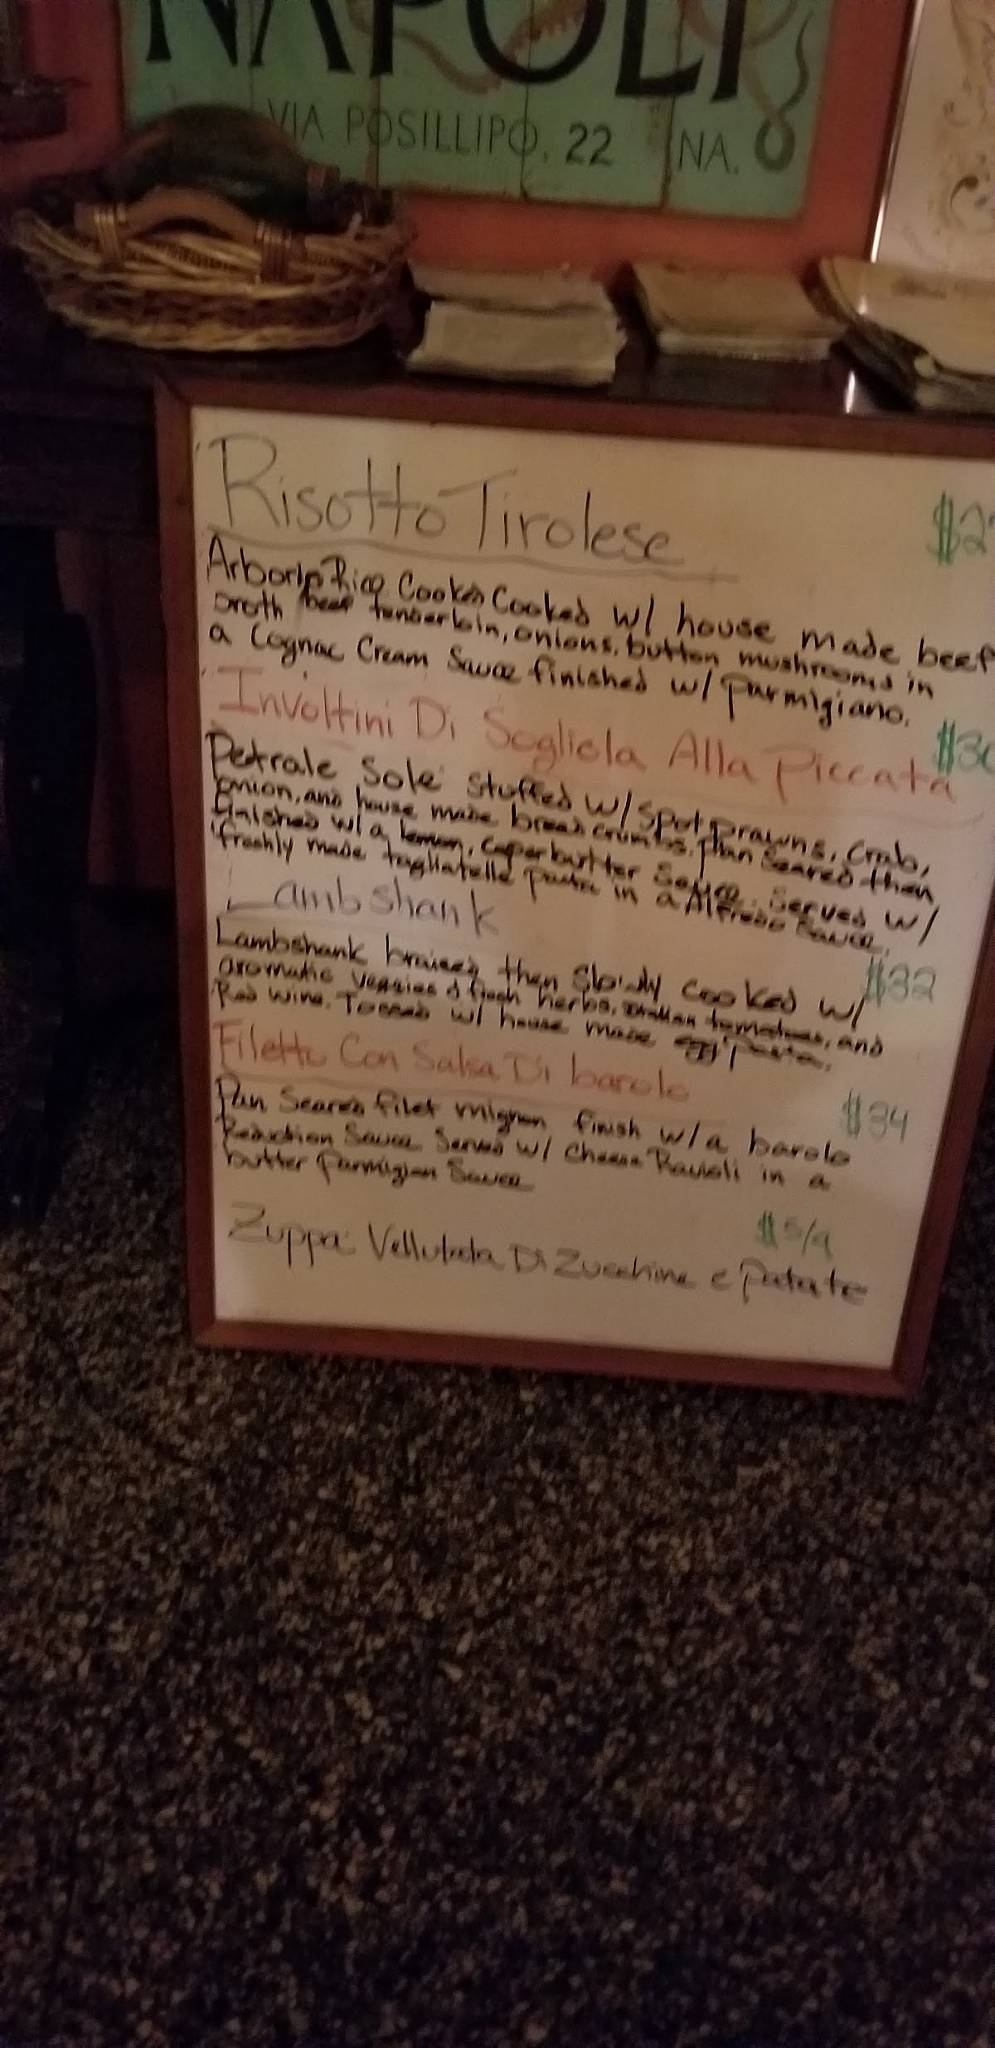 NAPOLI
VIA POSILLIPO, 22 NA.
Risotto Tirolese $2
Arborio Rice Cooked Cooked w/ house made beef
broth beef tenderloin, onions, button mushrooms in
a Cognac Cream Sauce finished w/ parmigiano.
Involtini Di Sogliola Alla Piccata $30
Petrale Sole Stuffed w/ Spot prawns, Crab,
onion, and house made bread crumbs. Pan Seared then
finished w/ a lemon, caper butter Sauce. Served w/
freshly made tagliatelle pasta in a Alfredo Sauce.
Lambshank $32
Lambshank braised then Slowly cooked w/
aromatic veggies & fresh herbs, Italian tomatoes, and
Red Wine. Tossed w/ house made egg pasta.
Filetto Con Salsa Di barolo $34
Pan Seared filet mignon finish w/ a barolo
Reduction Sauce Served w/ Cheese Ravioli in a
butter Parmigian Sauce
$5/9
Zuppa: Vellutata Di Zucchine e Patate